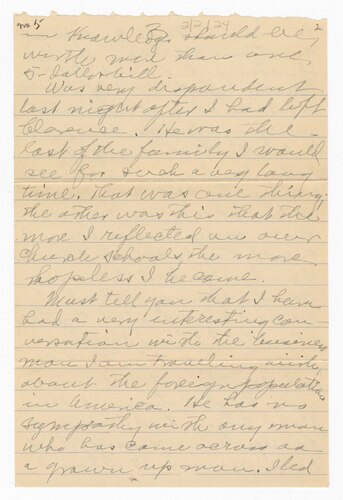 no 5 2/2/24 2
in knowledge should be,
worth more than one,
5- Later bill
Was very despondent
last night after I had left
Clarence. He was the
last of the family I would
see for such a very long
time. That was one thing,
the other was this that the
more I reflected on our
Church schools the more
hopeless I became.
Must tell you that I have
had a very interesting con-
versation with the business
man I am traveling with,
about the foreign population
in America. He has no
sympathy with any man
who has come across as
a grown up man. I led